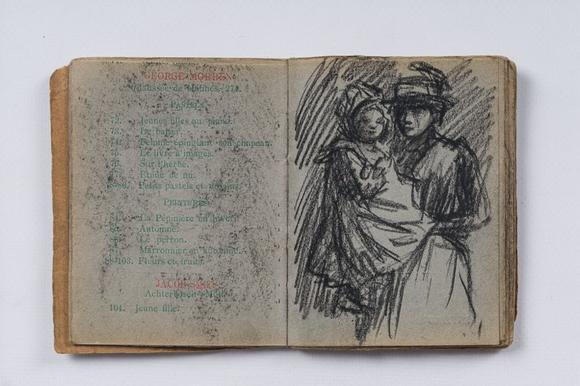 GEORGE MORREN
Chaussée de Malines, 274.
PASTELS
72. Jeunes filles au piano.
73. Le baiser.
74. Femme épinglant son chapeau.
Le livre à images.
Sur l'herbe.
Étude de nu.
Petits pastels et dessins.
PEINTURES
La Pépinière en hiver.
Automne.
Le perron.
Marronnier en automne.
-103. Fleurs et fruits.
JACOB
104. Jeune fille.